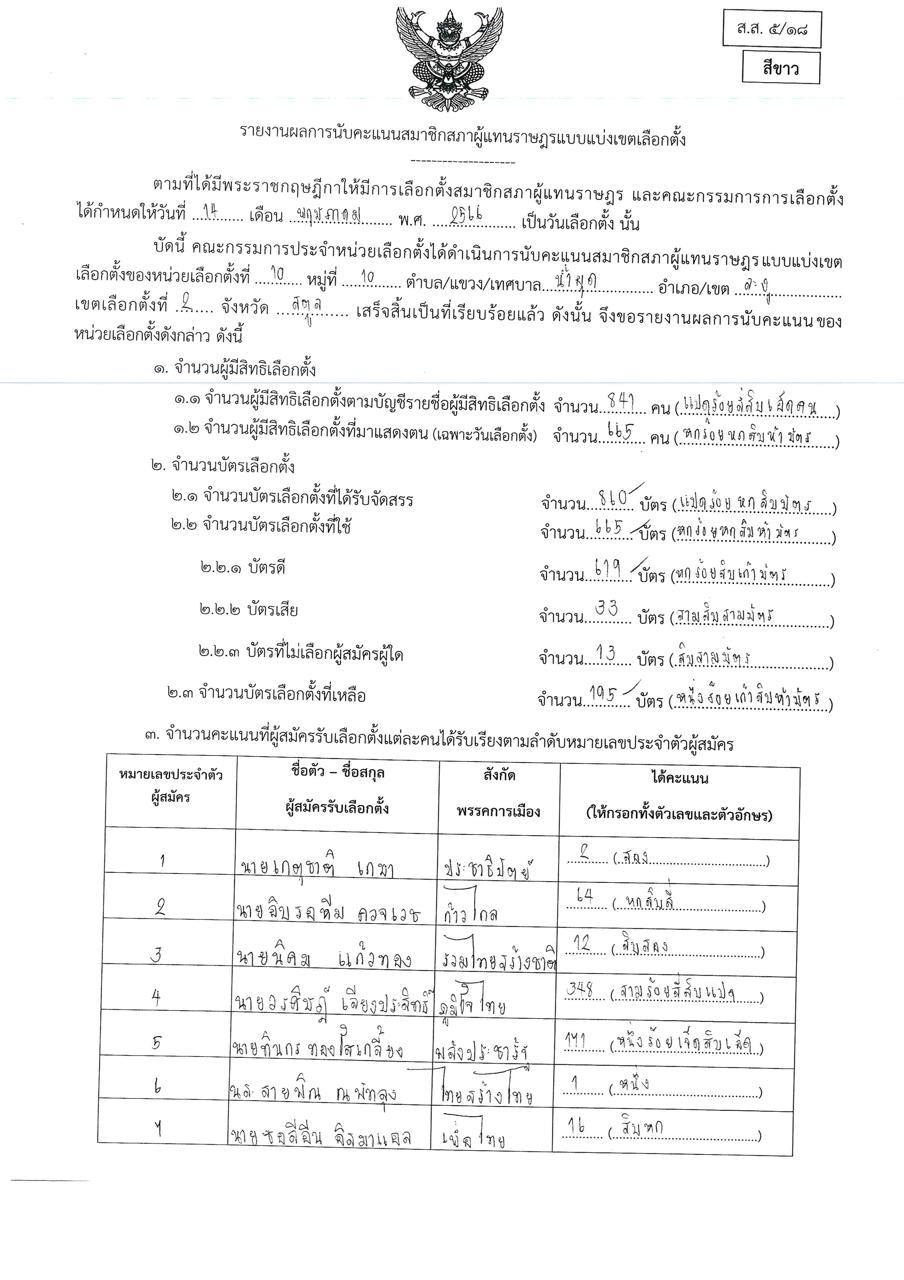 ส.ส. ๕/๑๘
สีขาว
รายงานผลการนับคะแนนสมาชิกสภาผู้แทนราษฎรแบบแบ่งเขตเลือกตั้ง
ตามที่ได้มีพระราชกฤษฎีกาให้มีการเลือกตั้งสมาชิกสภาผู้แทนราษฎร และคณะกรรมการการเลือกตั้ง
ได้กำหนดให้วันที่ 14 เดือน พฤษภาคม พ.ศ. 2566 เป็นวันเลือกตั้ง นั้น
บัดนี้ คณะกรรมการประจำหน่วยเลือกตั้งได้ดำเนินการนับคะแนนสมาชิกสภาผู้แทนราษฎรแบบแบ่งเขต
เลือกตั้งของหน่วยเลือกตั้งที่ 10 หมู่ที่ 10 ตำบล/แขวง/เทศบาล น้ำผุด อำเภอ/เขต ละงู
เขตเลือกตั้งที่ 2 จังหวัด สตูล เสร็จสิ้นเป็นที่เรียบร้อยแล้ว ดังนั้น จึงขอรายงานผลการนับคะแนนของ
หน่วยเลือกตั้งดังกล่าว ดังนี้
๑. จำนวนผู้มีสิทธิเลือกตั้ง
๑.๑ จำนวนผู้มีสิทธิเลือกตั้งตามบัญชีรายชื่อผู้มีสิทธิเลือกตั้ง จำนวน 841 คน (แปดร้อยสี่สิบเอ็ดคน)
๑.๒ จำนวนผู้มีสิทธิเลือกตั้งที่มาแสดงตน (เฉพาะวันเลือกตั้ง) จำนวน 665 คน (หกร้อยหกสิบห้าบัตร)
๒. จำนวนบัตรเลือกตั้ง
๒.๑ จำนวนบัตรเลือกตั้งที่ได้รับจัดสรร จำนวน 860 บัตร (แปดร้อยหกสิบบัตร)
๒.๒ จำนวนบัตรเลือกตั้งที่ใช้ จำนวน 665 บัตร (หกร้อยหกสิบห้าบัตร)
๒.๒.๑ บัตรดี จำนวน 619 บัตร (หกร้อยสิบเก้าบัตร)
๒.๒.๒ บัตรเสีย จำนวน 33 บัตร (สามสิบสามบัตร)
๒.๒.๓ บัตรที่ไม่เลือกผู้สมัครผู้ใด จำนวน 13 บัตร (สิบสามบัตร)
๒.๓ จำนวนบัตรเลือกตั้งที่เหลือ จำนวน 195 บัตร (หนึ่งร้อยเก้าสิบห้าบัตร)
๓. จำนวนคะแนนที่ผู้สมัครรับเลือกตั้งแต่ละคนได้รับเรียงตามลำดับหมายเลขประจำตัวผู้สมัคร
หมายเลขประจำตัว ชื่อตัว – ชื่อสกุล สังกัด ได้คะแนน
ผู้สมัคร ผู้สมัครรับเลือกตั้ง พรรคการเมือง (ให้กรอกทั้งตัวเลขและตัวอักษร)
1 นายเกตุชาติ เกษา ประชาธิปัตย์ 2 (สอง)
2 นายอิบรอหีม ควจเวช ก้าวไกล 64 (หกสิบสี่)
3 นายนิคม แก้วทอง รวมไทยสร้างชาติ 12 (สิบสอง)
4 นายวรศิษฎ์ เลียงประสิทธิ์ ภูมิใจไทย 348 (สามร้อยสี่สิบแปด)
5 นายทินกร ทองใสเกลี้ยง พลังประชารัฐ 171 (หนึ่งร้อยเจ็ดสิบเอ็ด)
6 นส. สายพิณ ณ พัทลุง ไทยสร้างไทย 1 (หนึ่ง)
7 นายซอลีฮีน อิสมาแอล เพื่อไทย 16 (สิบหก)